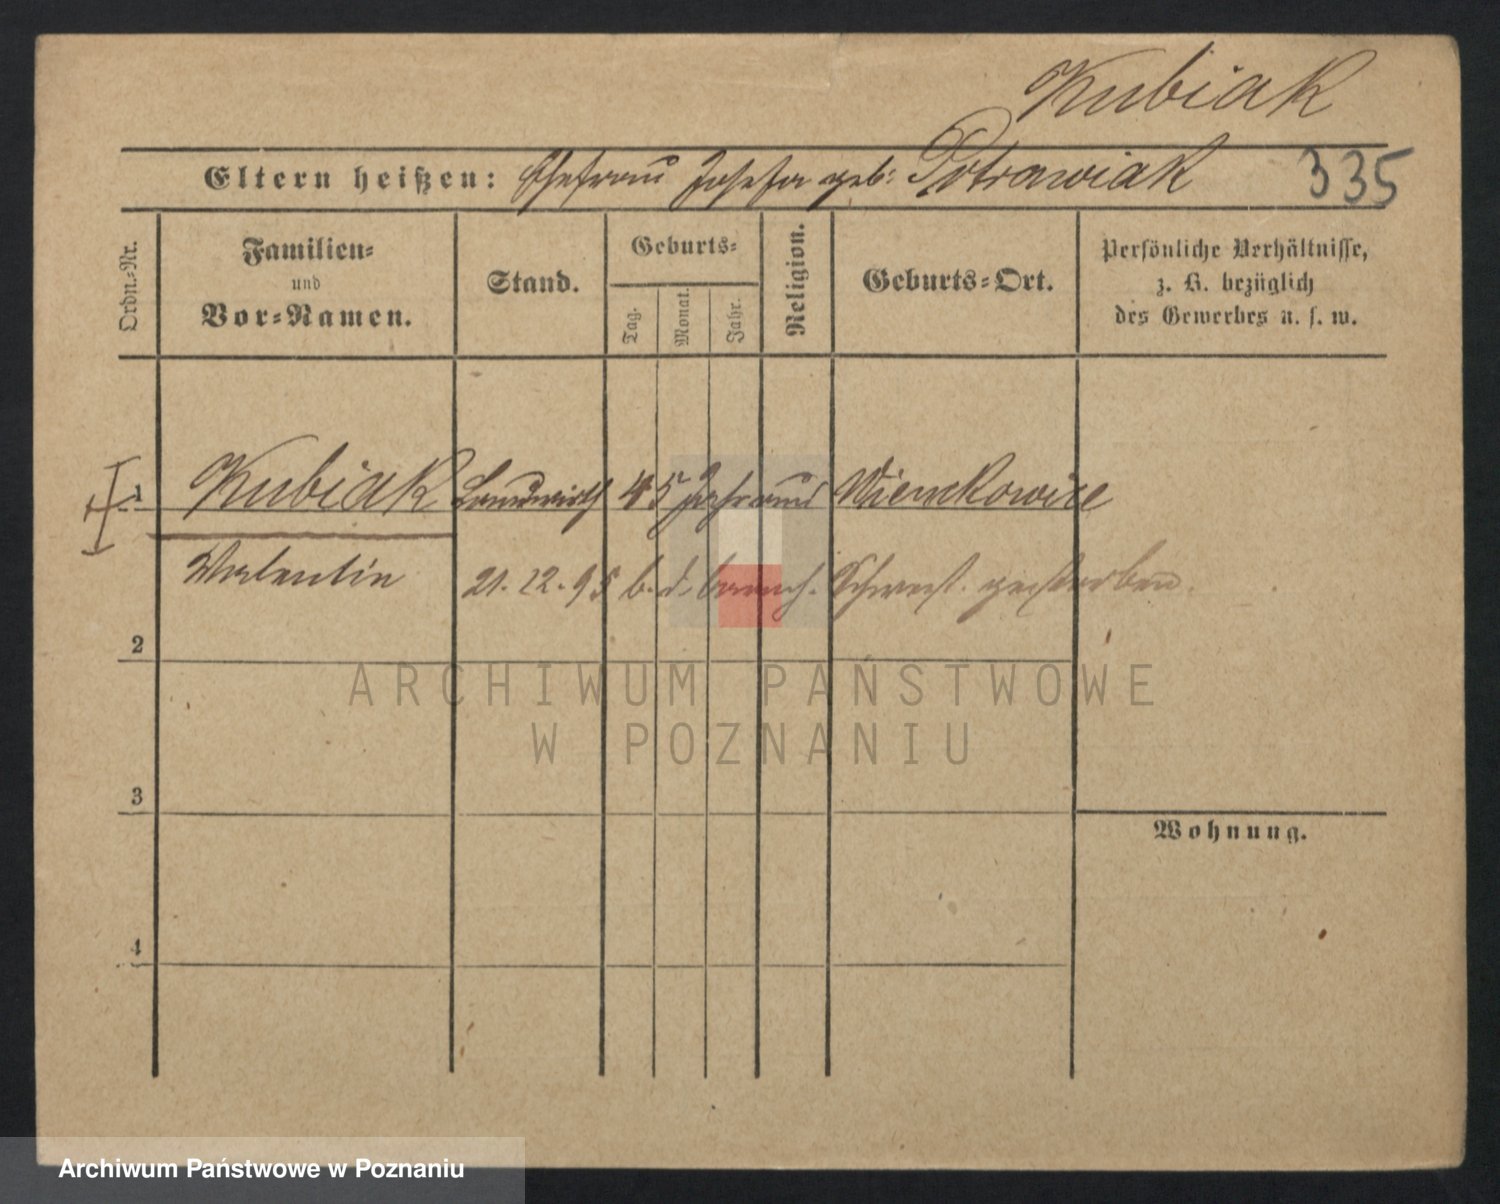 Kubiak
Eltern heißen: Ehefrau Josefa geb: Potrawiak 335
Ordn.-Nr.
Familien-
und
Vor-Namen.
Stand.
Geburts-
Tag.
Monat.
Jahr.
Religion.
Geburts-Ort.
Persönliche Verhältnisse,
z. B. bezüglich
des Gewerbes u. s. w.
1 Kubiak Landwirth 45 Jahr aus
Valentin 21.12.95 b. d. barmh. Schwest. gestorben.
2
ARCHIWUM PAŃSTWOWE
W POZNANIU
3
Wohnung.
4
Archiwum Państwowe w Poznaniu